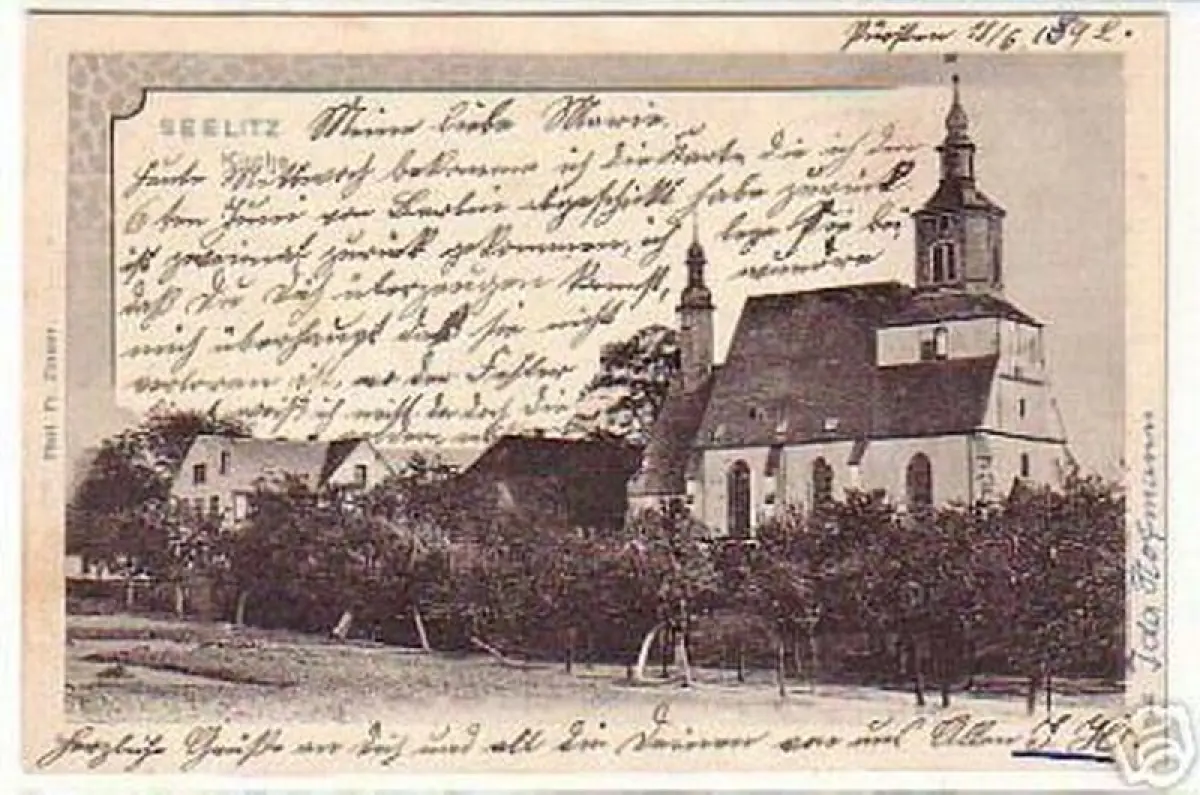 11/6 1892.
SEELITZ
Kirche
Meine liebe Marie,
heute Mittwoch bekomme ich die Karte die ich den
6ten Juni von Berlin abgeschickt habe zurück
ist zweimal zurück gekommen, ich lege sie bei
daß Du Dich überzeugen kannst, wundre
mich überhaupt daß sie nicht
verloren ist, wo der Fehler
weiß ich nicht, da doch die
Phot. Fr. Zehner
Ida Hofmann
Herzliche Grüße an Dich und all die Deinen von uns Allen I. H.